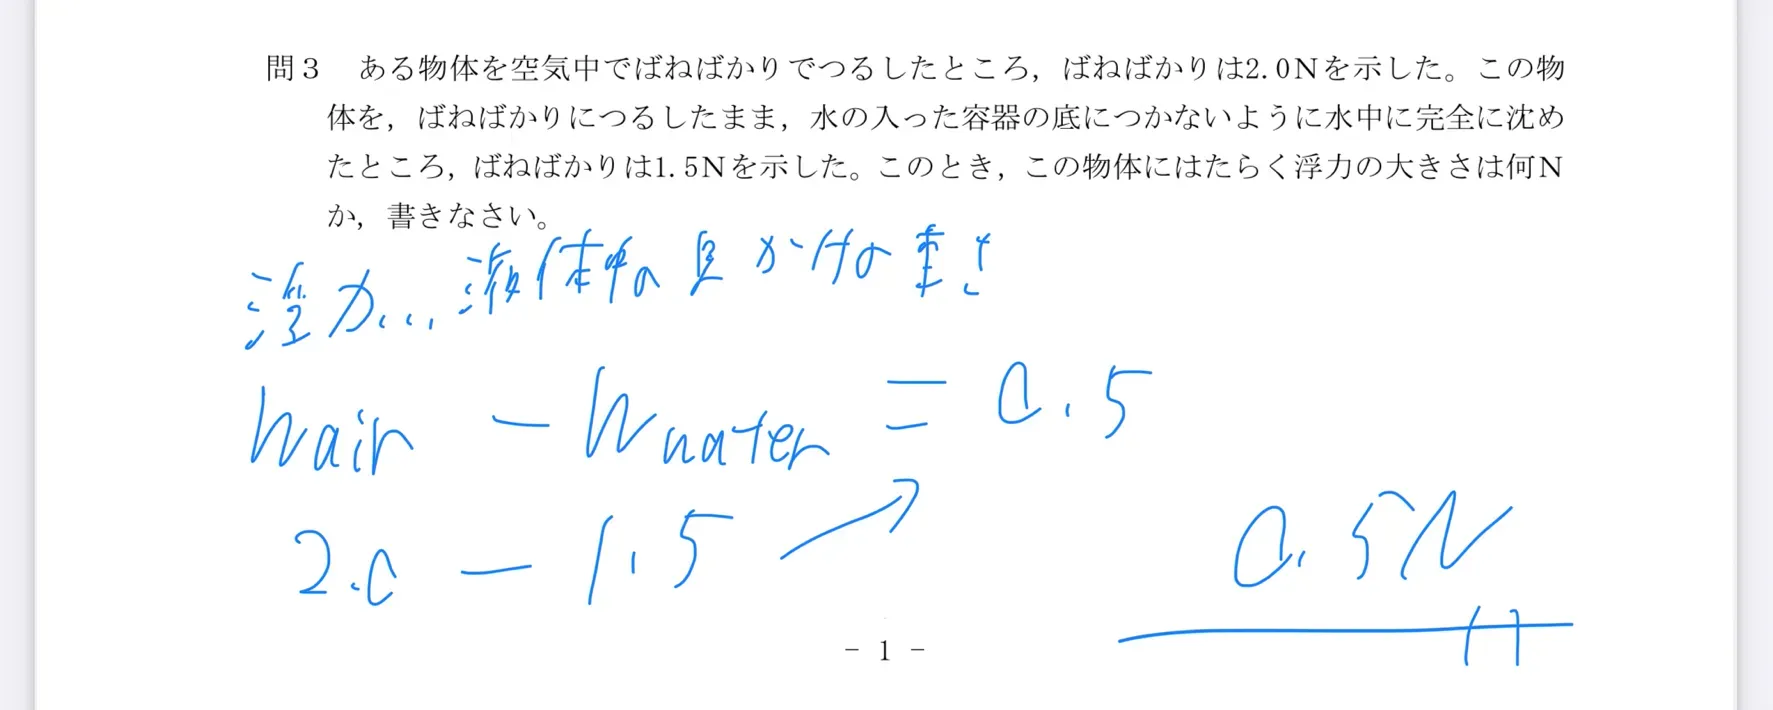 問３　ある物体を空気中でばねばかりでつるしたところ，ばねばかりは2.0Ｎを示した。この物
体を，ばねばかりにつるしたまま，水の入った容器の底につかないように水中に完全に沈め
たところ，ばねばかりは1.5Ｎを示した。このとき，この物体にはたらく浮力の大きさは何Ｎ
か，書きなさい。
浮力...液体中の見かけの重さ
Wair - Wwater = 0.5
2.0 - 1.5
0.5N
- 1 -